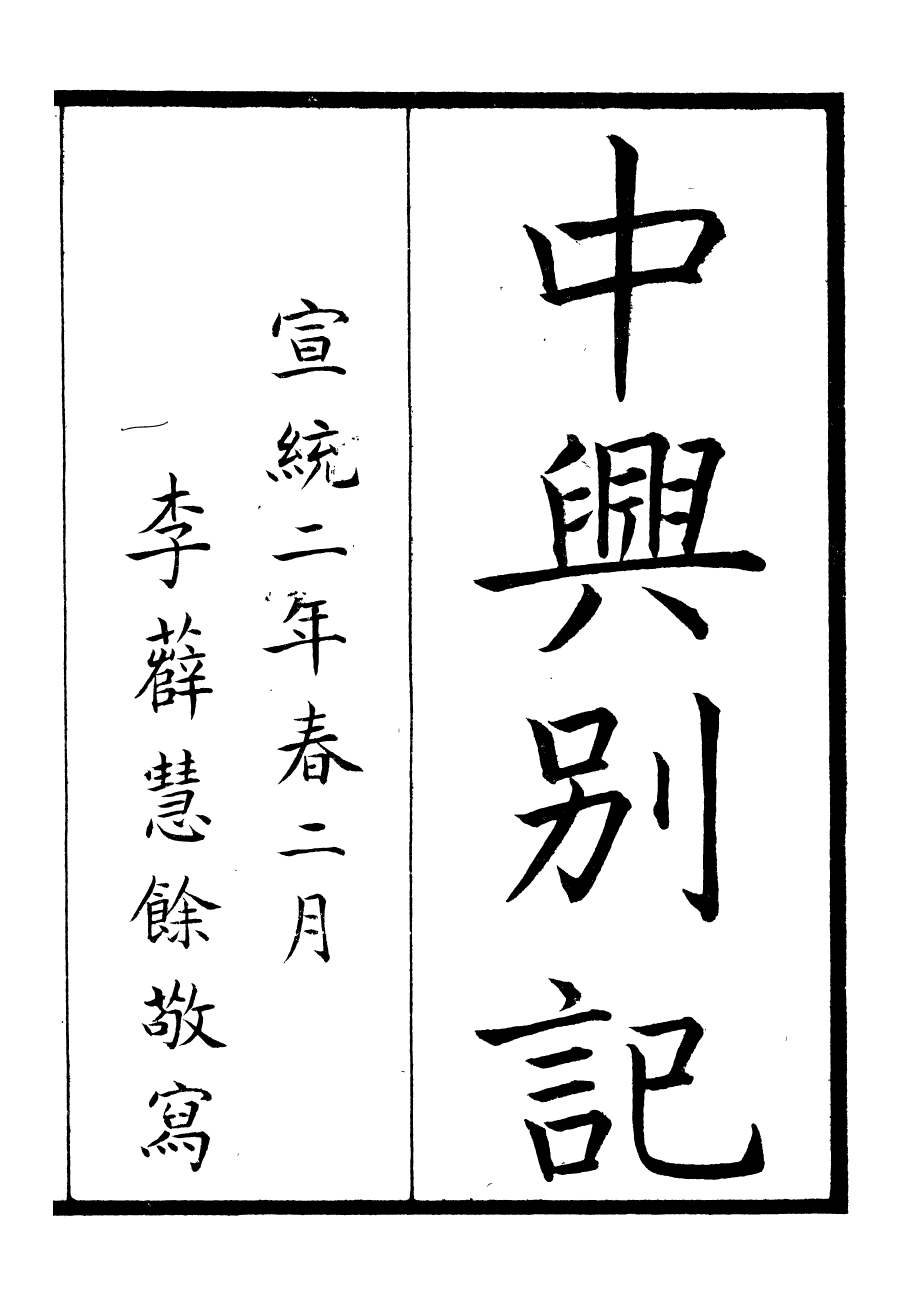 中興别記
宣統二年春二月
李薜慧餘敬寫